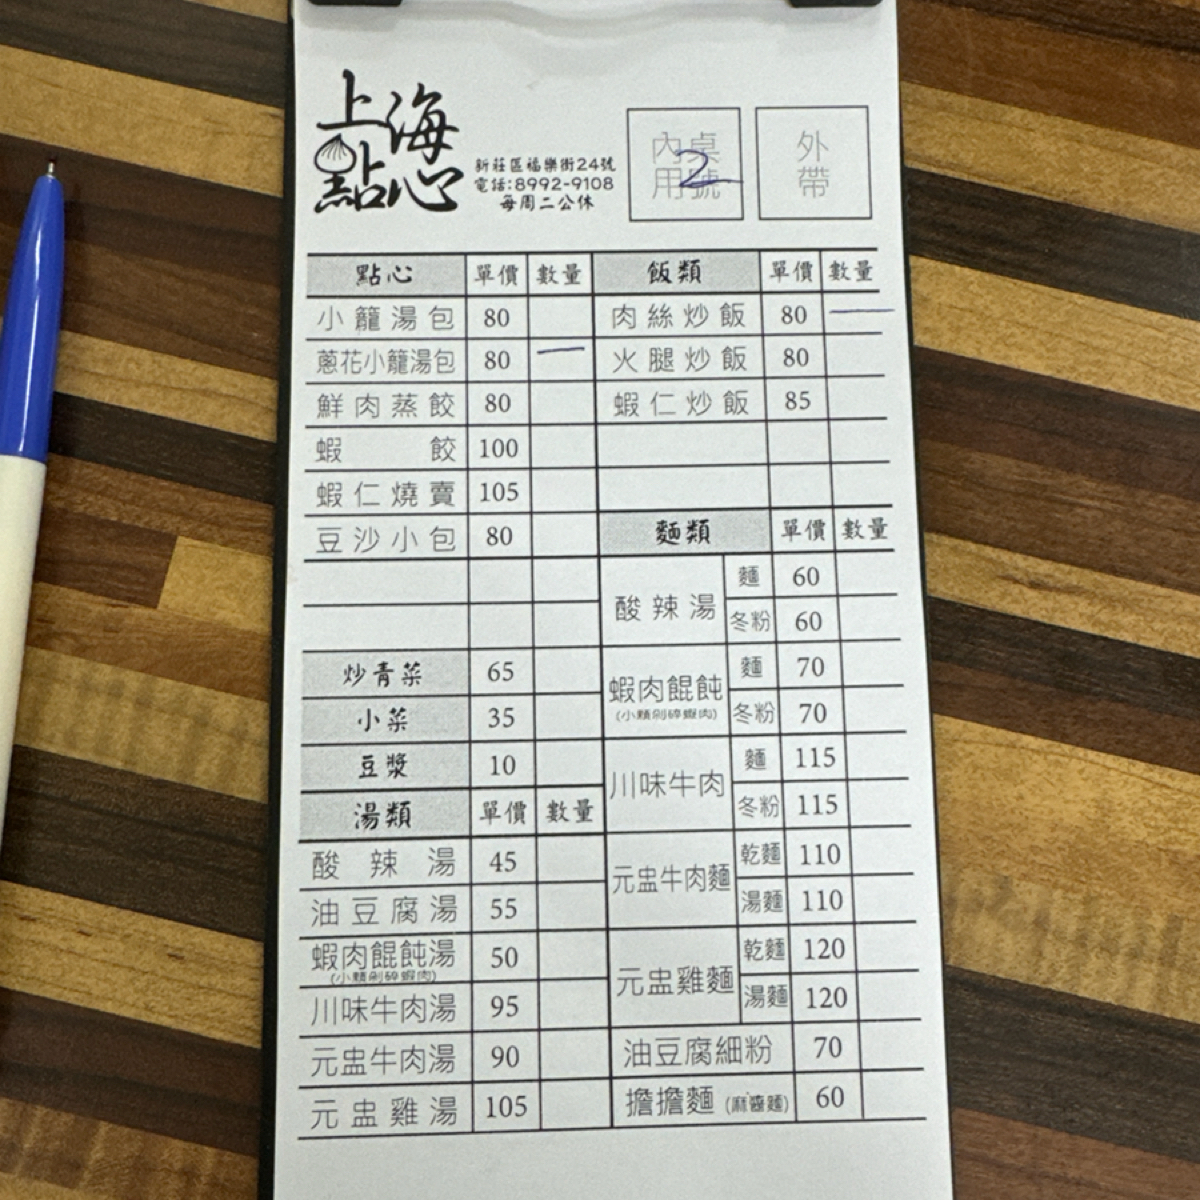 上海
點心
新莊區福樂街24號
電話:8992-9108
每周二公休
內用 桌號 2
外帶
點心 單價 數量
小籠湯包 80
蔥花小籠湯包 80 一
鮮肉蒸餃 80
蝦餃 100
蝦仁燒賣 105
豆沙小包 80
炒青菜 65
小菜 35
豆漿 10
湯類 單價 數量
酸辣湯 45
油豆腐湯 55
蝦肉餛飩湯 50
(小顆剁碎蝦肉)
川味牛肉湯 95
元盅牛肉湯 90
元盅雞湯 105
飯類 單價 數量
肉絲炒飯 80 一
火腿炒飯 80
蝦仁炒飯 85
麵類 單價 數量
酸辣湯 麵 60
冬粉 60
蝦肉餛飩 麵 70
(小顆剁碎蝦肉) 冬粉 70
川味牛肉 麵 115
冬粉 115
元盅牛肉麵 乾麵 110
湯麵 110
元盅雞麵 乾麵 120
湯麵 120
油豆腐細粉 70
擔擔麵 (麻醬麵) 60